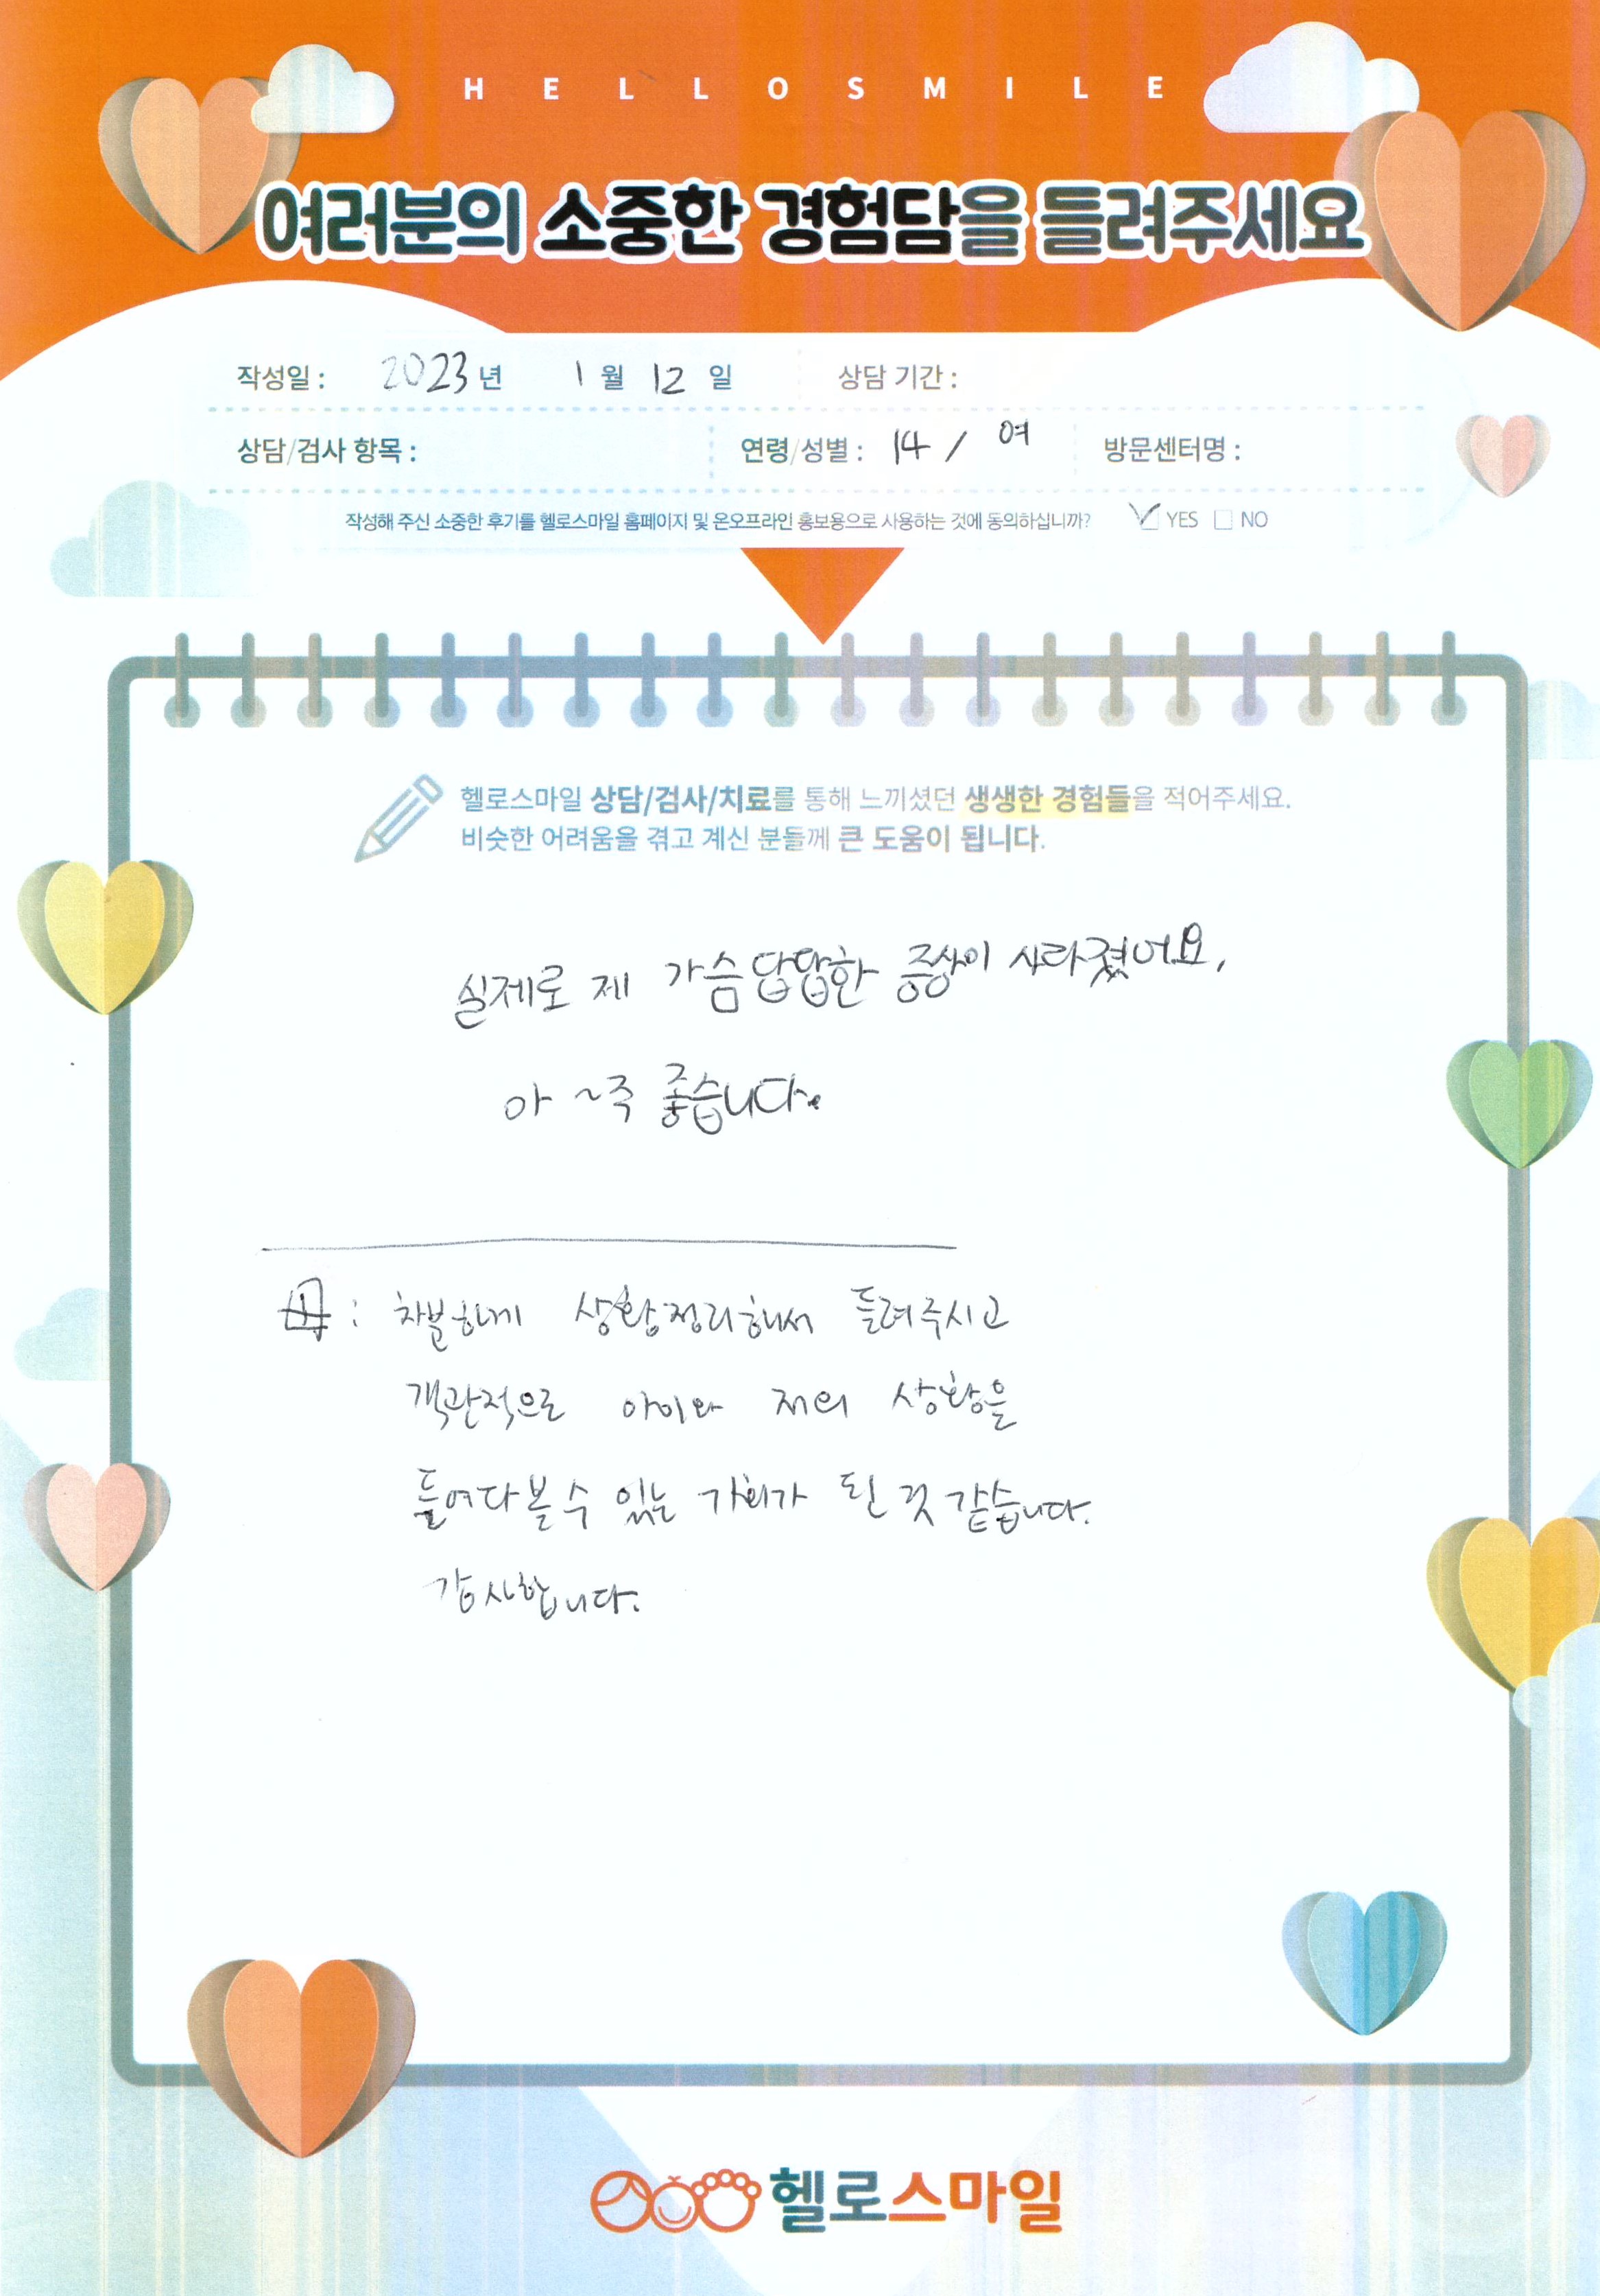 HELLOSMILE
여러분의 소중한 경험담을 들려주세요
작성일 : 2023년 1월 12일 상담 기간 :
상담/검사 항목 : 연령/성별 : 14 / 여 방문센터명 :
작성해 주신 소중한 후기를 헬로스마일 홈페이지 및 온오프라인 홍보용으로 사용하는 것에 동의하십니까? YES NO
헬로스마일 상담/검사/치료를 통해 느끼셨던 생생한 경험들을 적어주세요.
비슷한 어려움을 겪고 계신 분들께 큰 도움이 됩니다.
실제로 제 가슴답답한 증상이 사라졌어요,
아~주 좋습니다.
母 : 차분하게 상황정리해서 들려주시고
객관적으로 아이와 저의 상황을
들여다볼 수 있는 기회가 된 것 같습니다.
감사합니다.
헬로스마일